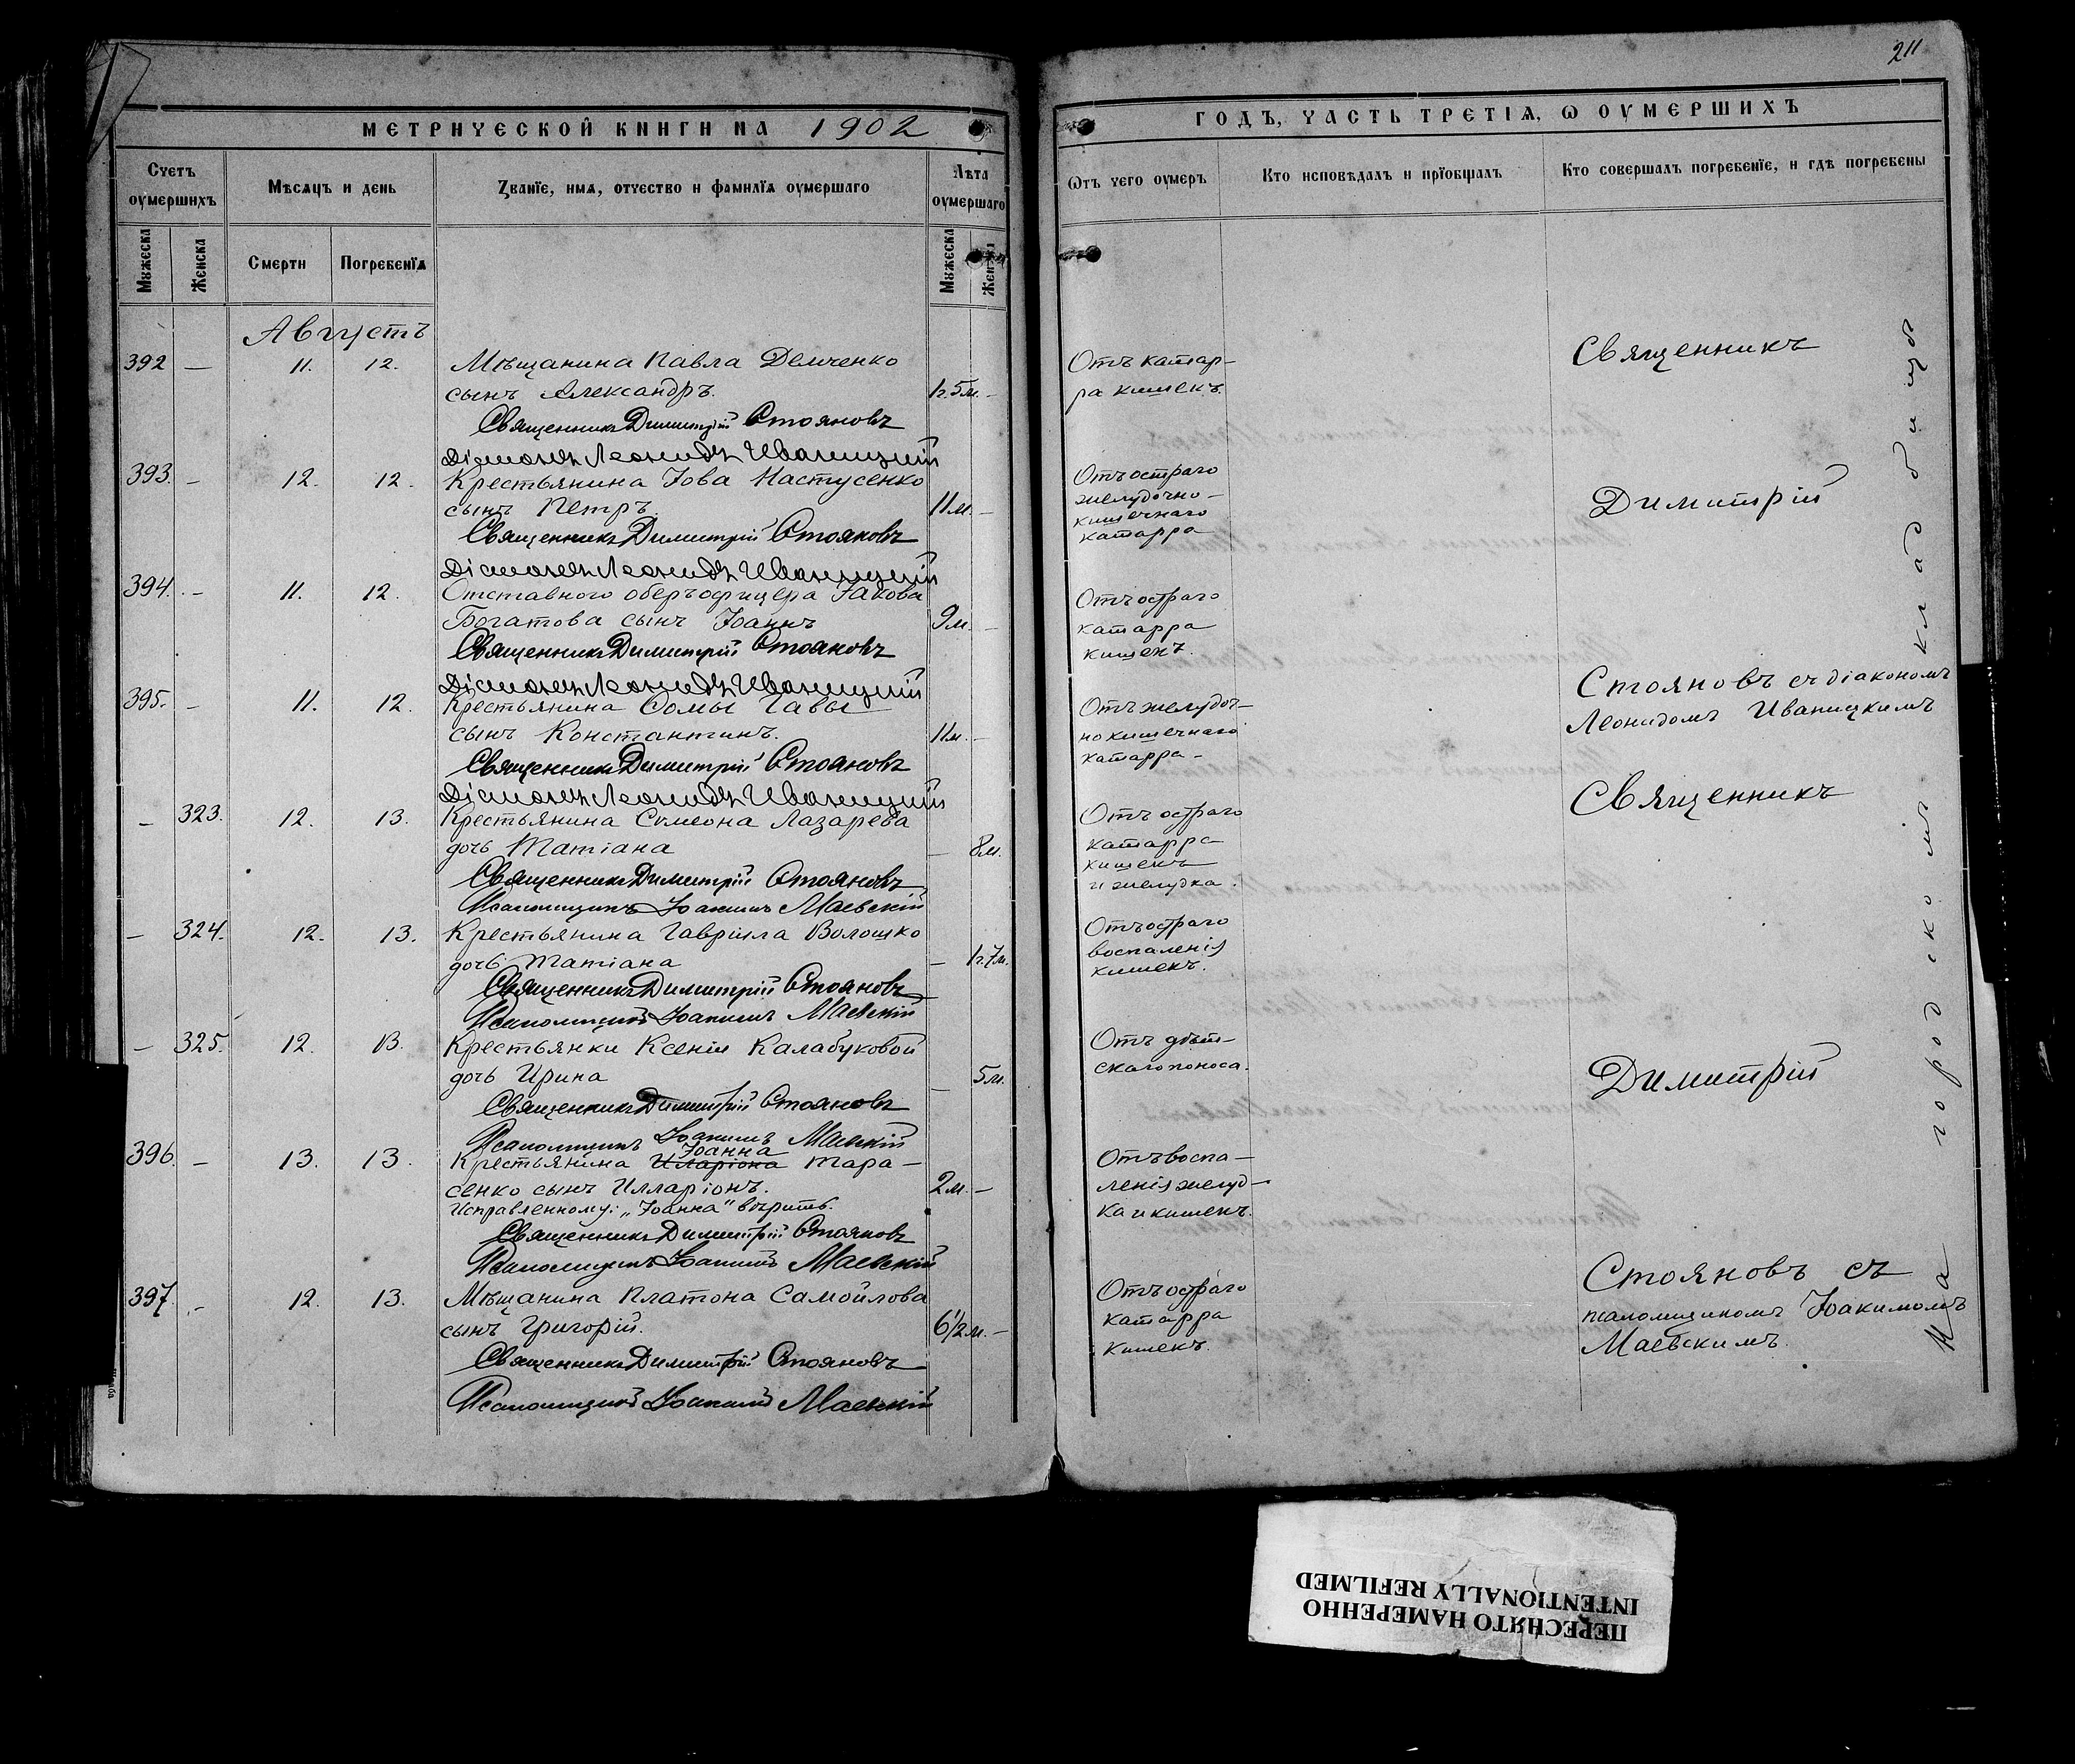 211
МЕТРИЧЕСКОЙ КНИГИ НА 1902
ГОДЪ, ЧАСТЬ ТРЕТІѦ, Ѡ ОУМЕРШИХЪ
Счетъ оумершихъ
Мѣсяцъ и день
Званїе, имѧ, отчество и фамилїѧ оумершаго
Лѣта оумершаго
Ѡтъ чего оумеръ
Кто исповѣдалъ и прїобщалъ
Кто совершалъ погребенїе, и гдѣ погребены
Мужеска
Женска
Смерти
Погребенїѧ
Мужеска
Женска
Августъ
392 — 11. 12. Мѣщанина Павла Демченко
сынъ Александръ. 1г.5м. —
Отъ катар-
ра кишекъ.
Священникъ Димитрій Стояновъ
Діаконъ Леонидъ Иваницкій
393. — 12. 12. Крестьянина Іова Настусенко
сынъ Петръ. 11м. —
Отъ остраго
желудочно-
кишечнаго
катарра
Священникъ Димитрій Стояновъ
Діаконъ Леонидъ Иваницкій
394. — 11. 12. Отставного оберъофицера Іакова
Богатова сынъ Іоаннъ 9м. —
Отъ остраго
катарра
кишекъ.
Священникъ Димитрій Стояновъ
Діаконъ Леонидъ Иваницкій
395. — 11. 12. Крестьянина Ѳомы Гавы
сынъ Константинъ. 11м. —
Отъ желудоч-
но кишечнаго
катарра —
Священникъ Димитрій Стояновъ
Діаконъ Леонидъ Иваницкій
— 323. 12. 13. Крестьянина Симеона Лазарева
дочь Татіана — 8м.
Отъ остраго
катарра
кишекъ
и желудка.
Священникъ Димитрій Стояновъ
Псаломщикъ Іоакимъ Маевскій
— 324. 12. 13. Крестьянина Гавріила Волошко
дочь Татіана — 1г.7м.
Отъ остраго
воспаленія
кишекъ.
Священникъ Димитрій Стояновъ
Псаломщикъ Іоакимъ Маевскій
— 325. 12. 13. Крестьянки Ксеніи Калабуковой
дочь Ирина — 5м.
Отъ дѣт-
скаго поноса.
Священникъ Димитрій Стояновъ
Псаломщикъ Іоакимъ Маевскій
Іоанна
396. — 13. 13. Крестьянина Иларіона Тара-
сенко сынъ Илларіонъ. 2м. —
Исправленному: „Іоанна" вѣрить.
Отъ воспа-
ленія желуд-
ка и кишекъ.
Священникъ Димитрій Стояновъ
Псаломщикъ Іоакимъ Маевскій
397. — 12. 13. Мѣщанина Платона Самойлова
сынъ Григорій. 6 1/2 м. —
Отъ остраго
катарра
кишекъ.
Священникъ Димитрій Стояновъ
Псаломщикъ Іоакимъ Маевскій
Священникъ
Димитрій
Стояновъ съ діакономъ
Леонидомъ Иваницкимъ
Священникъ
Димитрій
Стояновъ съ
псаломщикомъ Іоакимомъ
Маевскимъ.
На городскомъ кладбищѣ
ПЕРЕСНЯТО НАМЕРЕННО
INTENTIONALLY REFILMED